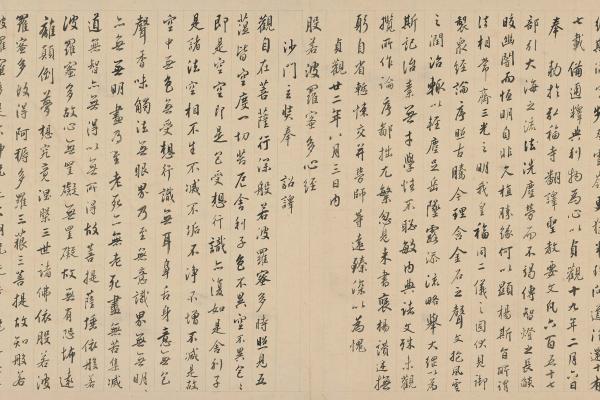 七載備通釋典利物為心以貞觀十九年二月六日
奉 勅於弘福寺翻譯聖教要文凡六百五十七
部引大海之流法洗塵勞而不竭傳智燈之長燄
皎幽闇而恒明自非久植勝緣何以顯楊斯旨所謂
法相常齊三光之明我皇福同二儀之固伏見御
製眾經論序照古騰今理含金石之聲文抱風雲
之潤治輒以輕塵足岳墜露添流略舉大綱以為
斯記治素無才學性不聰敏內典法文殊未觀
攬所作論序鄙拙尤繁忽見來書褒楊讚述撫
躬自省慙悚交并勞師等遠臻深以為愧
貞觀廿二年八月三日內
般若波羅蜜多心經
沙門玄奘奉 詔譯
觀自在菩薩行深般若波羅蜜多時照見五
蘊皆空度一切苦厄舍利子色不異空不異色色
即是空空即是色受想行識亦復如是舍利子
是諸法空相不生不滅不垢不淨不增不減是故
空中無色無受想行識無眼耳鼻舌身意無色
聲香味觸法無眼界乃至無意識界無無明
亦無無明盡乃至無老死亦無老死盡無苦集滅
道無智亦無得以無所得故菩提薩埵依般若
波羅蜜多故心無罣礙無罣礙故無有恐怖遠
離顛倒夢想究竟涅槃三世諸佛依般若波
羅蜜多故得阿耨多羅三藐三菩提故知般若